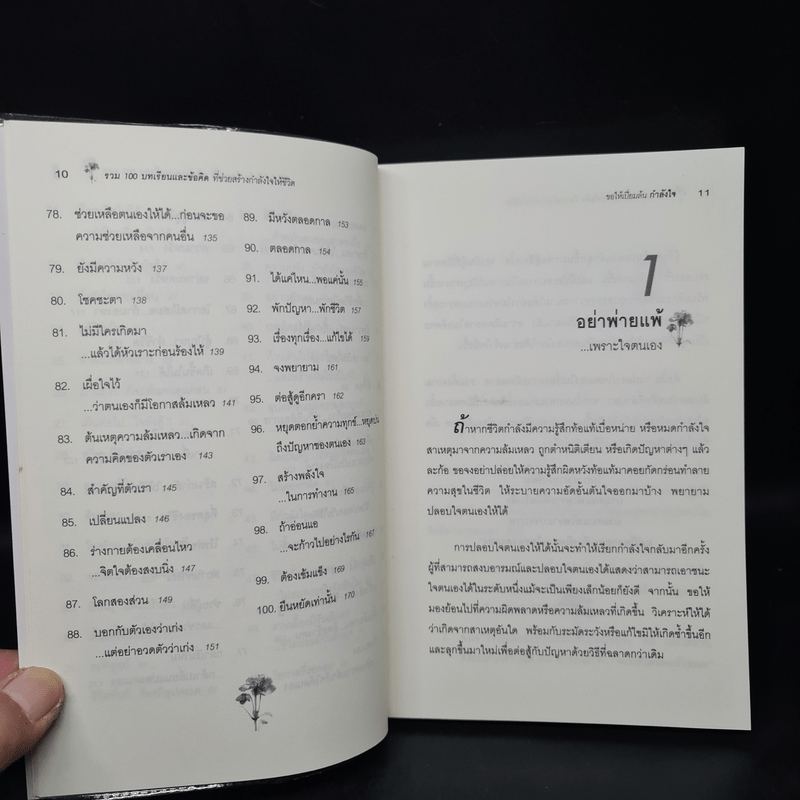 10 รวม 100 บทเรียนและข้อคิด ที่ช่วยสร้างกำลังใจให้ชีวิต
78. ช่วยเหลือตนเองให้ได้...ก่อนจะขอ
ความช่วยเหลือจากคนอื่น 135
79. ยังมีความหวัง 137
80. โชคชะตา 138
81. ไม่มีใครเกิดมา
...แล้วได้หัวเราะก่อนร้องไห้ 139
82. เผื่อใจไว้
...ว่าตนเองก็มีโอกาสล้มเหลว 141
83. ต้นเหตุความล้มเหลว...เกิดจาก
ความคิดของตัวเราเอง 143
84. สำคัญที่ตัวเรา 145
85. เปลี่ยนแปลง 146
86. ร่างกายต้องเคลื่อนไหว
...จิตใจต้องสงบนิ่ง 147
87. โลกสองส่วน 149
88. บอกกับตัวเองว่าเก่ง
...แต่อย่าอวดตัวว่าเก่ง 151
89. มีหวังตลอดกาล 153
90. ตลอดกาล 154
91. ได้แค่ไหน...พอแค่นั้น 155
92. พักปัญหา...พักชีวิต 157
93. เรื่องทุกเรื่อง...แก้ไขได้ 159
94. จงพยายาม 161
95. ต่อสู้ดูอีกครา 162
96. หยุดตอกย้ำความทุกข์...หยุดบ่น
ถึงปัญหาของตนเอง 163
97. สร้างพลังใจ
...ในการทำงาน 165
98. ถ้าอ่อนแอ
...จะก้าวไปอย่างไรกัน 167
99. ต้องเข้มแข็ง 169
100. ยืนหยัดเท่านั้น 170
ขอให้เปี่ยมล้น กำลังใจ 11
1
อย่าพ่ายแพ้
...เพราะใจตนเอง
ถ้าหากชีวิตกำลังมีความรู้สึกท้อแท้เบื่อหน่าย หรือหมดกำลังใจ
สาเหตุมาจากความล้มเหลว ถูกตำหนิติเตียน หรือเกิดปัญหาต่างๆ แล้ว
ละก้อ ขอจงอย่าปล่อยให้ความรู้สึกผิดหวังท้อแท้มาคอยกัดกร่อนทำลาย
ความสุขในชีวิต ให้ระบายความอัดอั้นตันใจออกมาบ้าง พยายาม
ปลอบใจตนเองให้ได้
การปลอบใจตนเองให้ได้นั้นจะทำให้เรียกกำลังใจกลับมาอีกครั้ง
ผู้ที่สามารถสงบอารมณ์และปลอบใจตนเองได้แสดงว่าสามารถเอาชนะ
ใจตนเองได้ในระดับหนึ่งแม้จะเป็นเพียงเล็กน้อยก็ยังดี จากนั้น ขอให้
มองย้อนไปที่ความผิดพลาดหรือความล้มเหลวที่เกิดขึ้น วิเคราะห์ให้ได้
ว่าเกิดจากสาเหตุอันใด พร้อมกับระมัดระวังหรือแก้ไขมิให้เกิดซ้ำขึ้นอีก
และลุกขึ้นมาใหม่เพื่อต่อสู้กับปัญหาด้วยวิธีที่ฉลาดกว่าเดิม